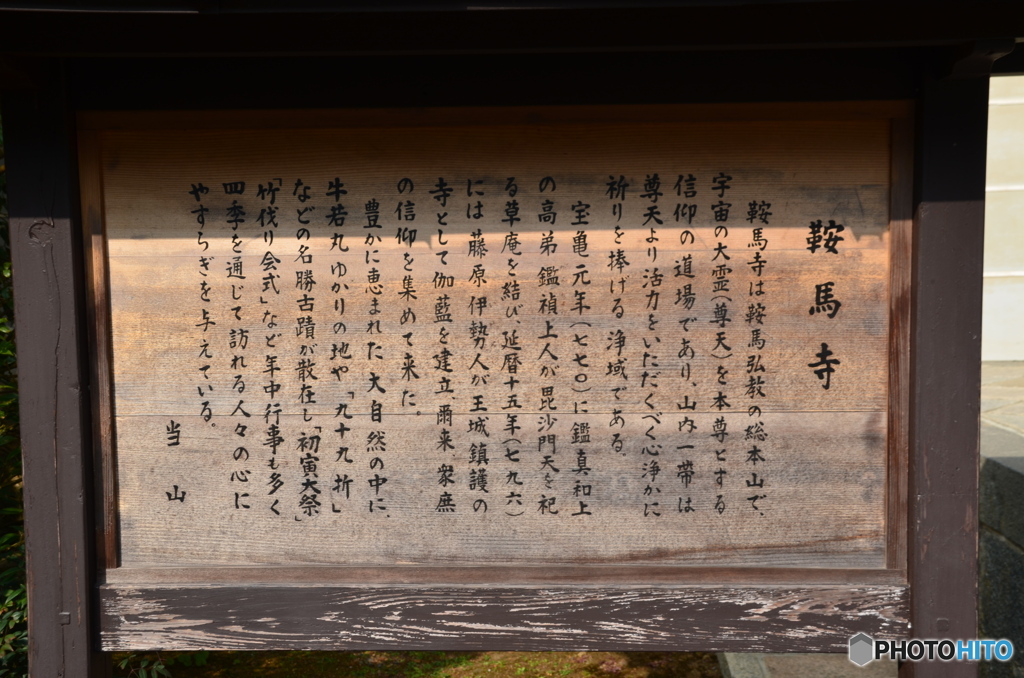 鞍馬寺
鞍馬寺は鞍馬弘教の総本山で、
宇宙の大霊(尊天)を本尊とする
信仰の道場であり、山内一帯は
尊天より活力をいただくべく心浄かに
祈りを捧げる浄域である。
宝亀元年(七七〇)に鑑真和上
の高弟鑑禎上人が毘沙門天を祀
る草庵を結び、延暦十五年(七九六)
には藤原伊勢人が王城鎮護の
寺として伽藍を建立、爾来衆庶
の信仰を集めて来た。
豊かに恵まれた大自然の中に、
牛若丸ゆかりの地や「九十九折」
などの名勝古蹟が散在し「初寅大祭」
「竹伐り会式」など年中行事も多く
四季を通じて訪れる人々の心に
やすらぎを与えている。
当山
PHOTOHITO